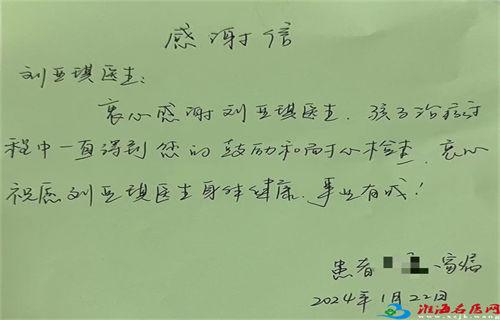 感谢信
刘亚琪医生:
衷心感谢刘亚琪医生,孩子治疗过
程中一直得到您的鼓励和耐心检查,衷心
祝愿刘亚琪医生身体健康,事业有成!
患者 家属
2024年1月22日
淮海名医网